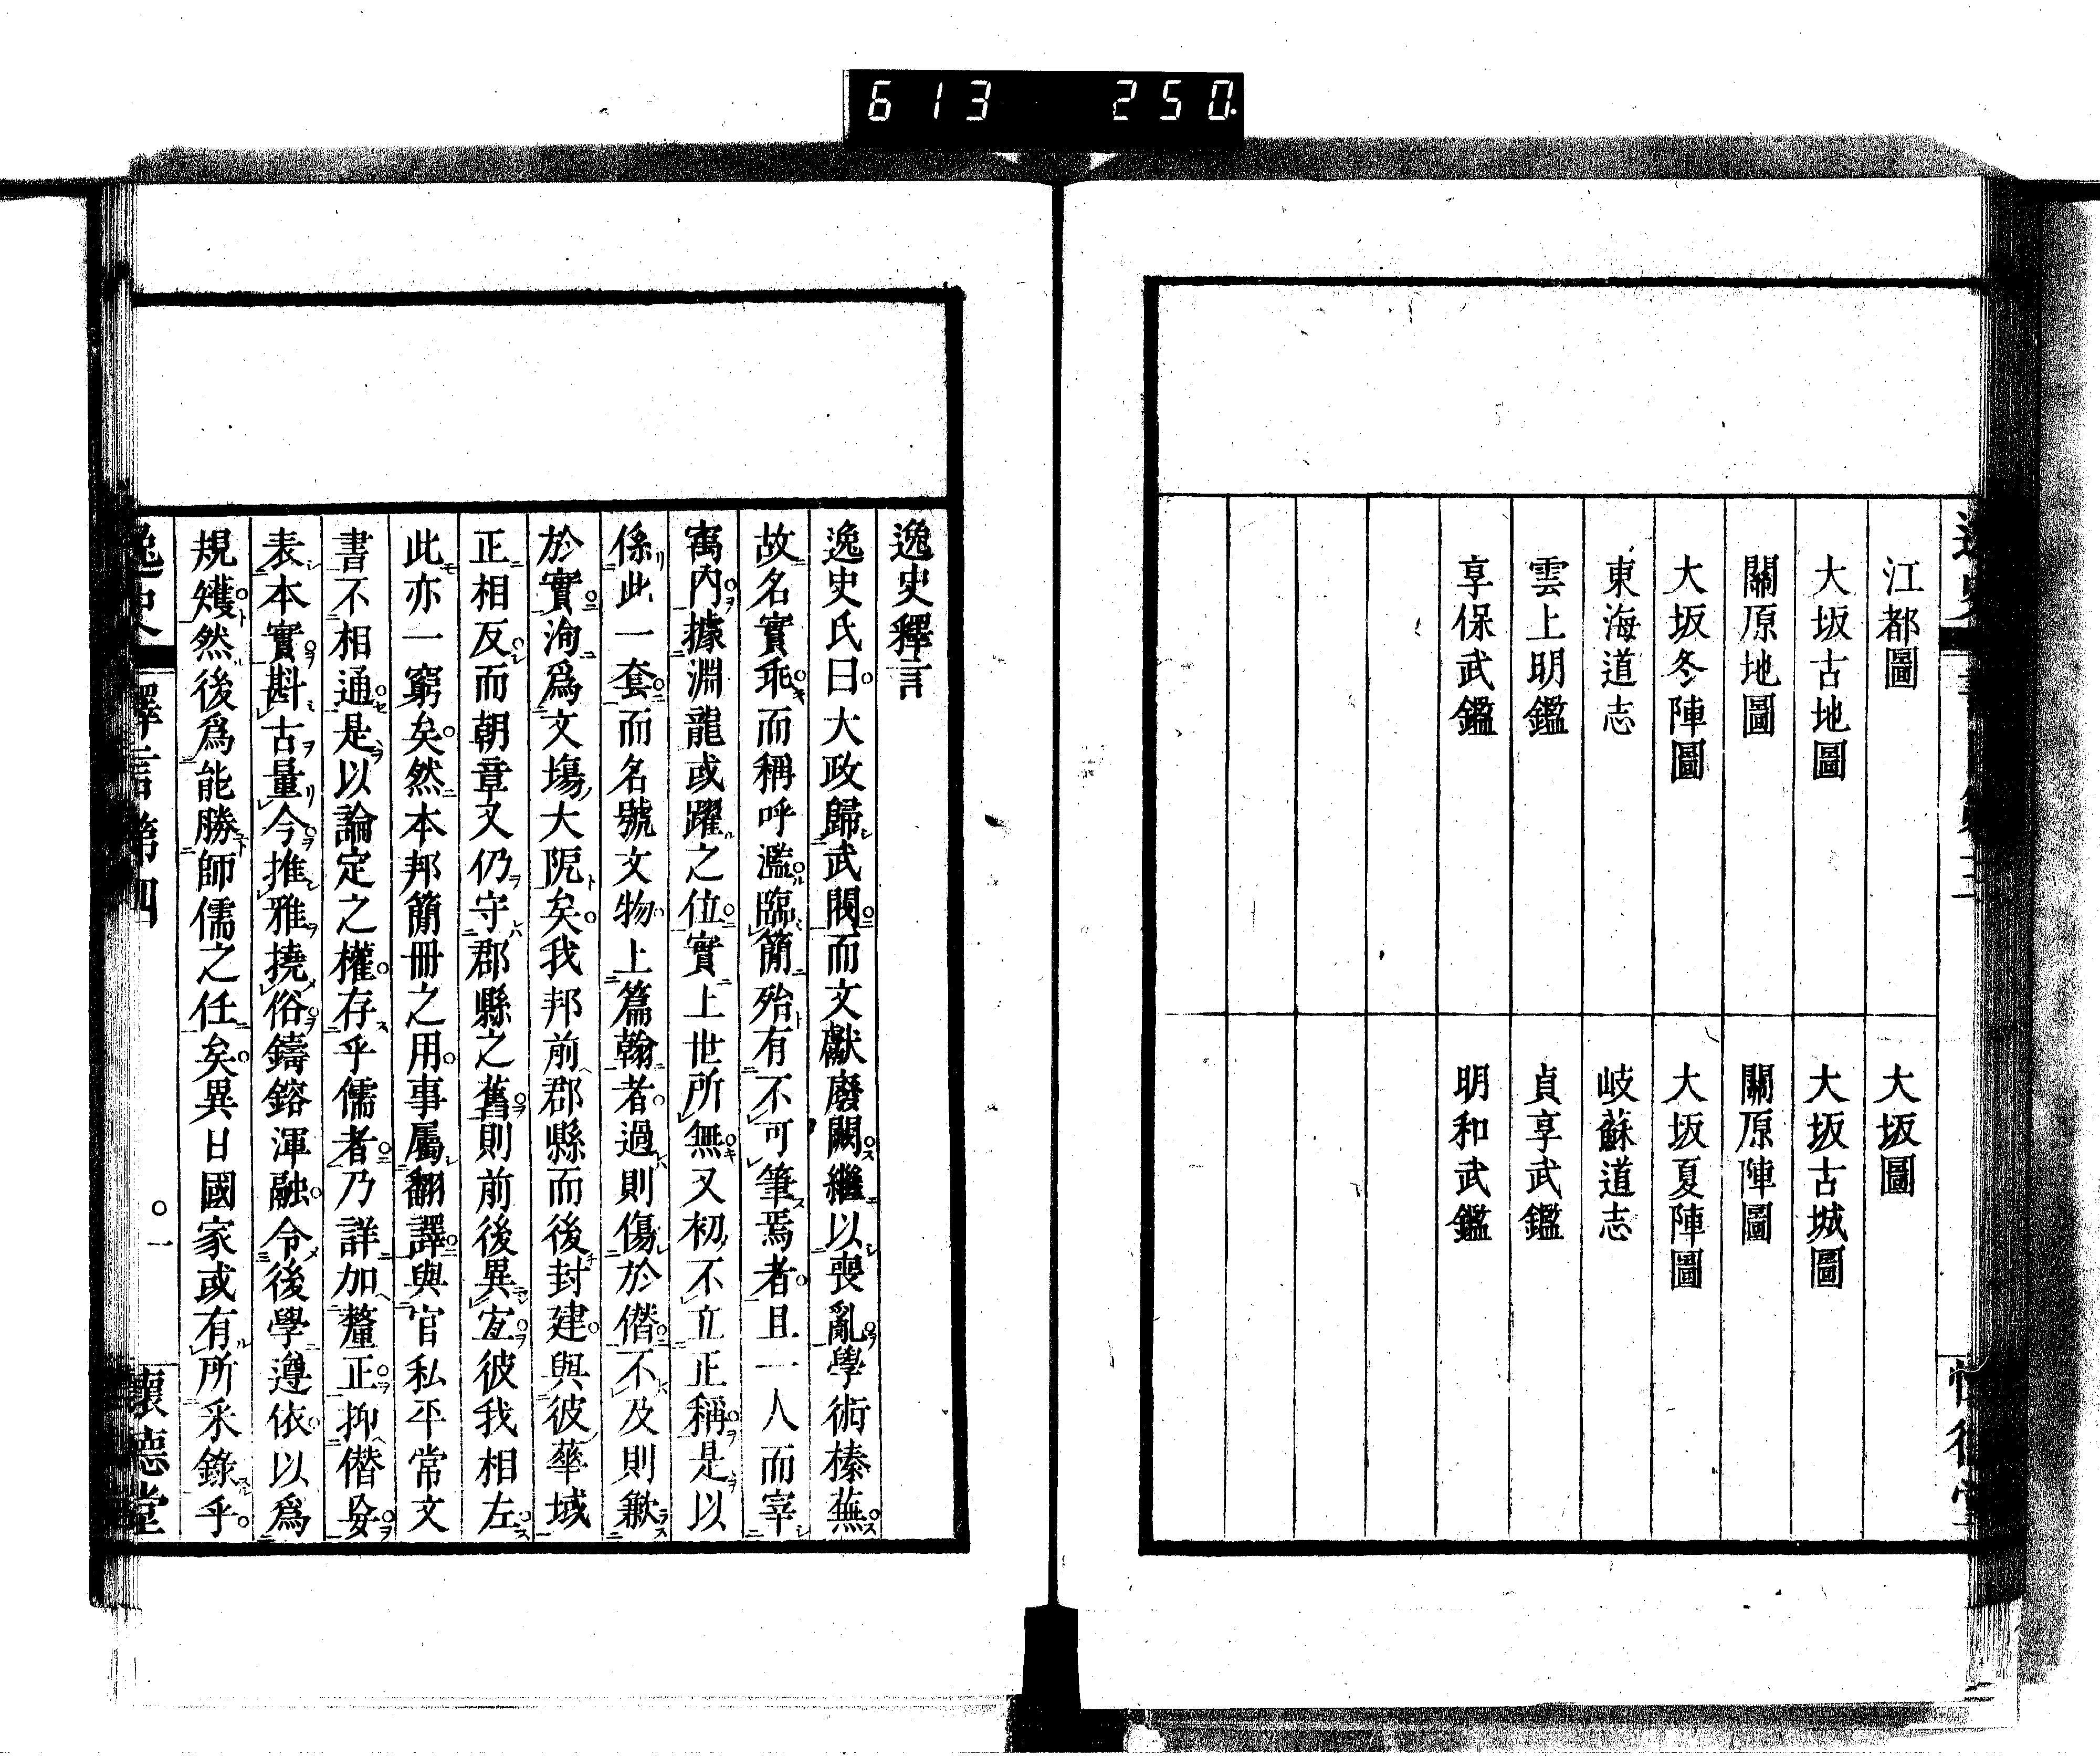 613 250
江都圖
大坂圖
大坂古地圖
大坂古城圖
關原地圖
關原陣圖
大坂冬陣圖
大坂夏陣圖
東海道志
岐蘇道志
雲上明鑑
貞享武鑑
享保武鑑
明和武鑑
逸史釋言
逸史氏曰大政歸武閥而文獻廢闕繼以喪亂學術榛蕪
故名實乖而稱呼濫臨簡殆有不可筆焉者且一人而宰
寓內據淵龍或躍之位實上世所無又初不立正稱是以
係此一套而名號文物上篇翰者過則傷於僭不及則歉
於實洵爲文場大阨矣我邦前郡縣而後封建與彼華域
正相反而朝章又仍守郡縣之舊則前後異宜彼我相左
此亦一窮矣然本邦簡冊之用事屬翻譯與官私平常文
書不相通是以論定之權存乎儒者乃詳加釐正抑僭妄
表本實斟古量今推雅撓俗鑄鎔渾融令後學遵依以爲
規矱然後爲能勝師儒之任矣異日國家或有所采錄乎
逸史 釋言第四 〇一 懷德堂